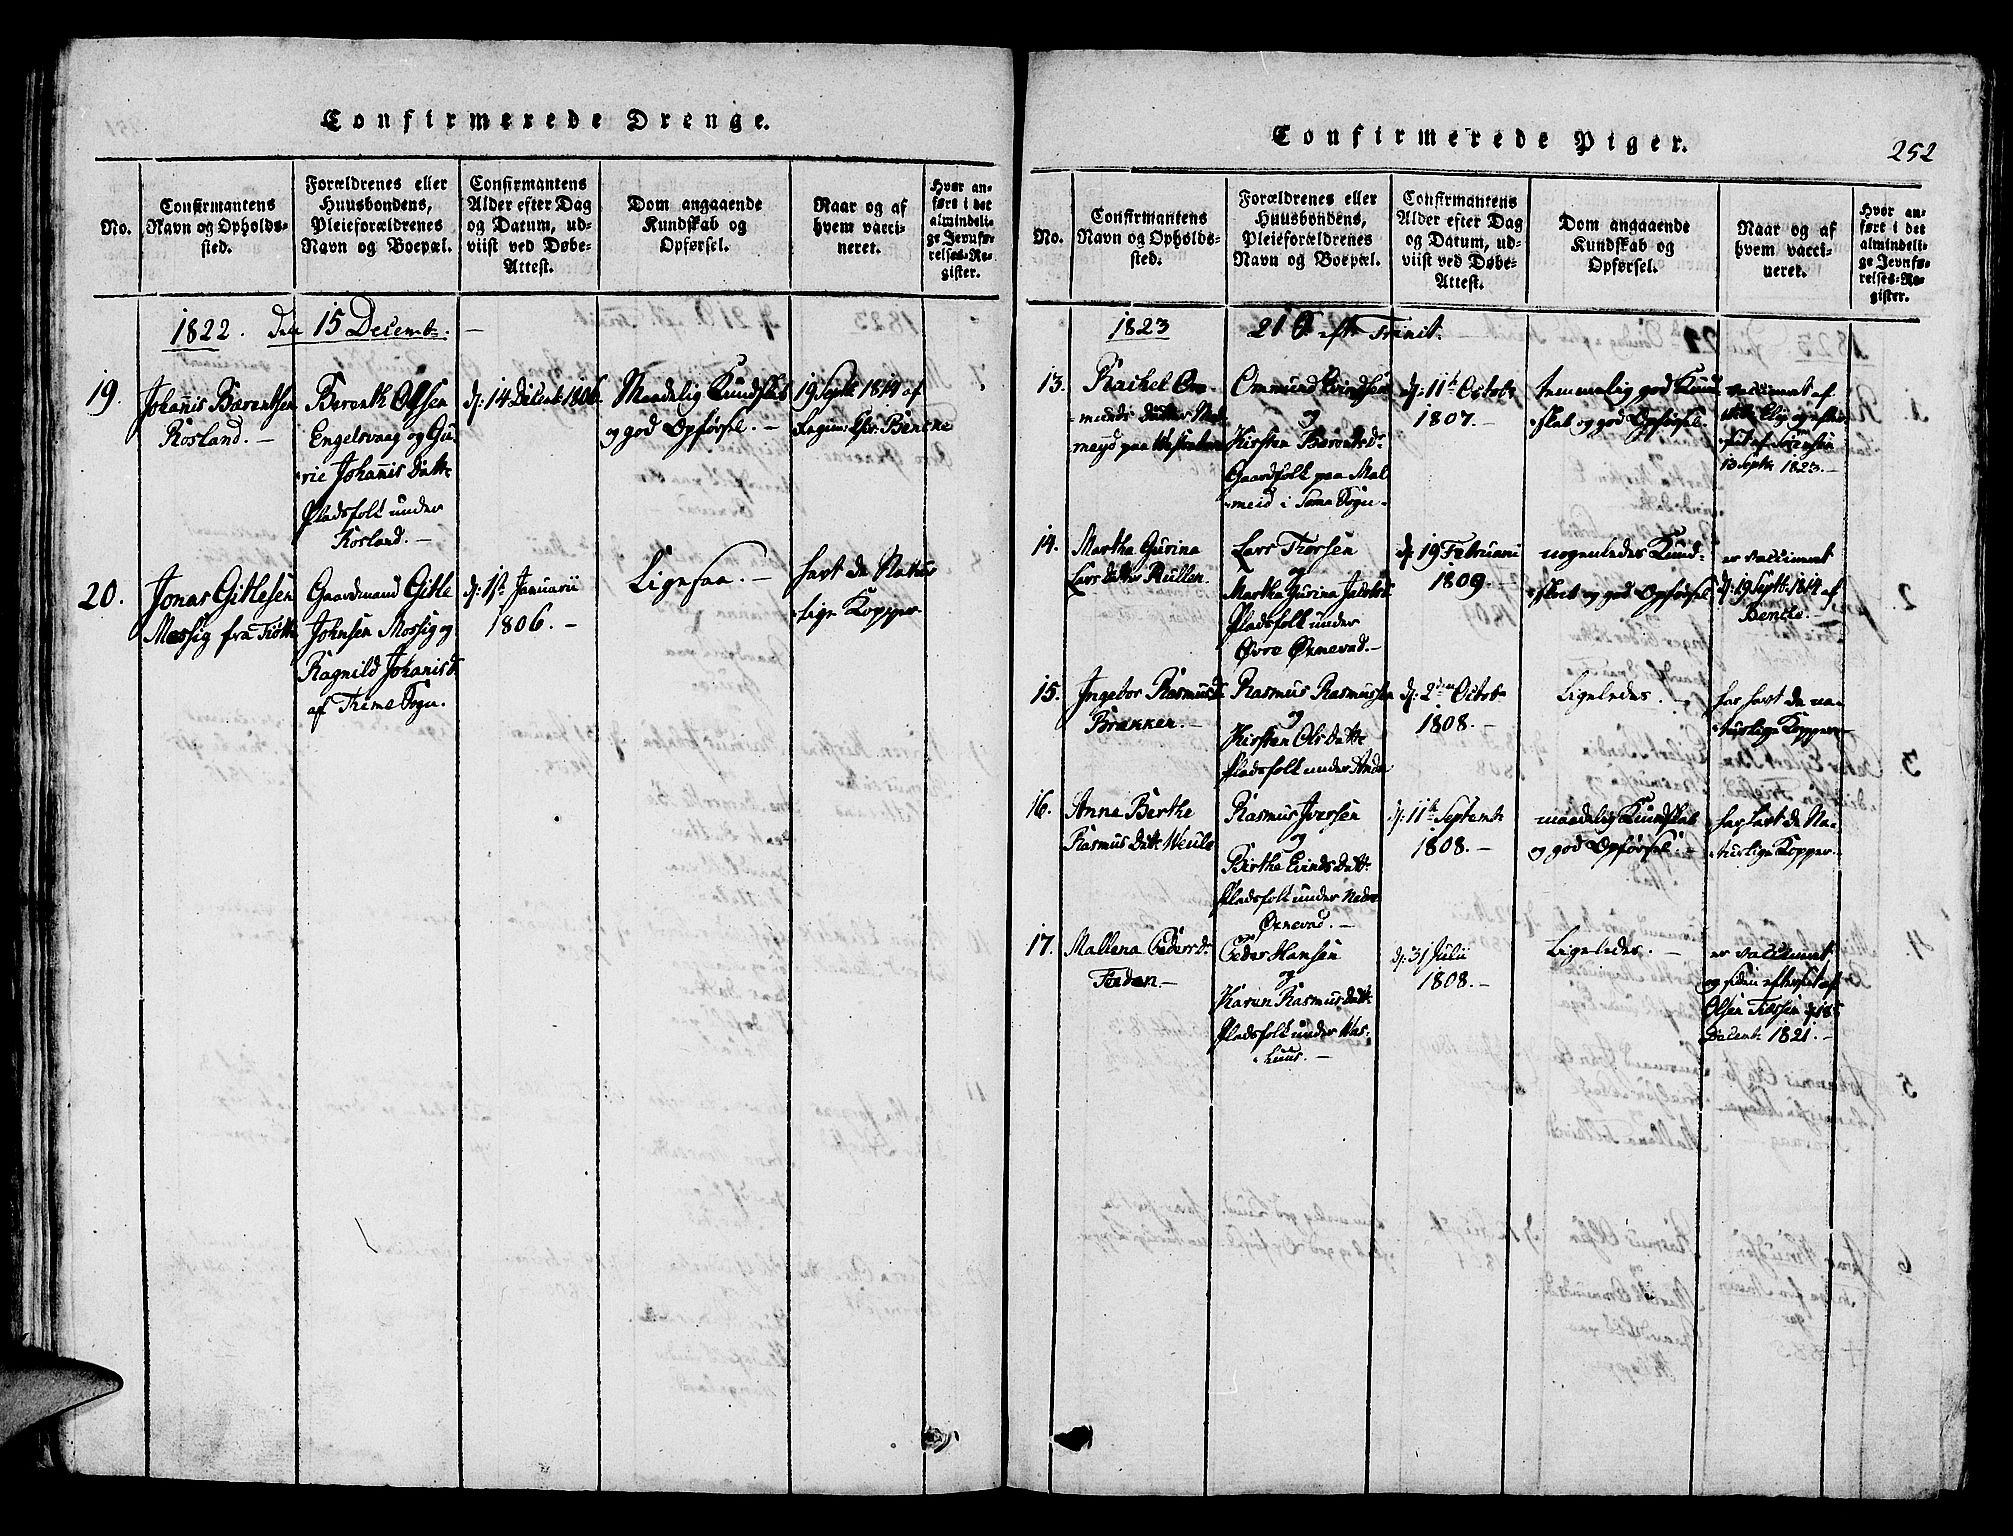 Confirmerede Drenge.
No.
Confirmantens
Navn og Opholds-
sted.
Forældrenes eller
Huusbondens,
Pleieforældrenes
Navn og Boepæl.
Confirmantens
Alder efter Dag
og Datum, ud-
viist ved Døbe-
Attest.
Dom angaaende
Kundskab og
Opførsel.
Naar og af
hvem vacci-
neret.
Hvor an-
ført i det
almindeli-
ge Jevnfø-
relses-Re-
gister.
1822. den 15 Decemb.
19.
Johannis Barentsen
Rosland.
Berenth Olsen
Engelsvaag og Gu-
rie Johannis Datte
Pladsfolk under
Rosland.
d: 14 Decemb 1806.
Maadelig Kundskab
og god Opførsel.
19 Septb 1814 af
Bencke
20.
Jonas Gitlesen
Mossig fra
Gaardmand Gitle
Johnsen Mossig og
Ragnild Johanisd
af Time Sogn.
d: 1st Januarii
1806.
Ligesaa.
havt de Natur
lige Kopper
Confirmerede Piger.
252
No.
Confirmantens
Navn og Opholds-
sted.
Forældrenes eller
Huusbondens,
Pleieforældrenes
Navn og Boepæl.
Confirmantens
Alder efter Dag
og Datum, ud-
viist ved Døbe-
Attest.
Dom angaaende
Kundskab og
Opførsel.
Naar og af
hvem vacci-
neret.
Hvor an-
ført i det
almindeli-
ge Jevnfø-
relses-Re-
gister.
1823 21 S. efter Trinit.
13.
Rachel Om-
munds Datter
paa
Ommund
og
Kirsten Berentsd.
Gaardfolk paa Mal
meid i Sama Sogn
d: 11te Octobr
1807.
temmelig god Kund
skab og god Opførsel.
vaccineret af
13 Septb 1823.
14.
Martha Gurina
Lars datter Rullen.
Lars Thorsen
og
Martha Gurina Jacobsd
Pladsfolk under
Øvre Ørnevad.
d: 19 Februarii
1809.
nogenledes Kund-
skab og god Opførsel
er vaccineret
d: 19 Septb. 1814 af
Bencke.
15.
Ingebor Rasmusd
Brækken.
Rasmus Rasmussen
og
Kirsten Ols datte
Pladsfolk under Anda
d: 2den Octob
1808.
Ligeledes.
har havt de na-
turlige Kopper
16.
Anne Berthe
Rasmus Datt.
Rasmus Iversen
og
Birthe Eivinds Datt.
Pladsfolk under Nedre
Ørnevad.
d: 11te Septemb
1808.
maadelig Kundskab
og god Opførsel.
har havt de Na-
turlige Kopper.
17.
Mallena Peders d.
Foeden
Peder Hansen
og
Karen Rasmus datt.
Pladsfolk under Has-
luus.
d: 31 Julii
1808.
Ligeledes.
er vaccineret
og siden efterset af
Olsen d: 18
Decemb. 1821.